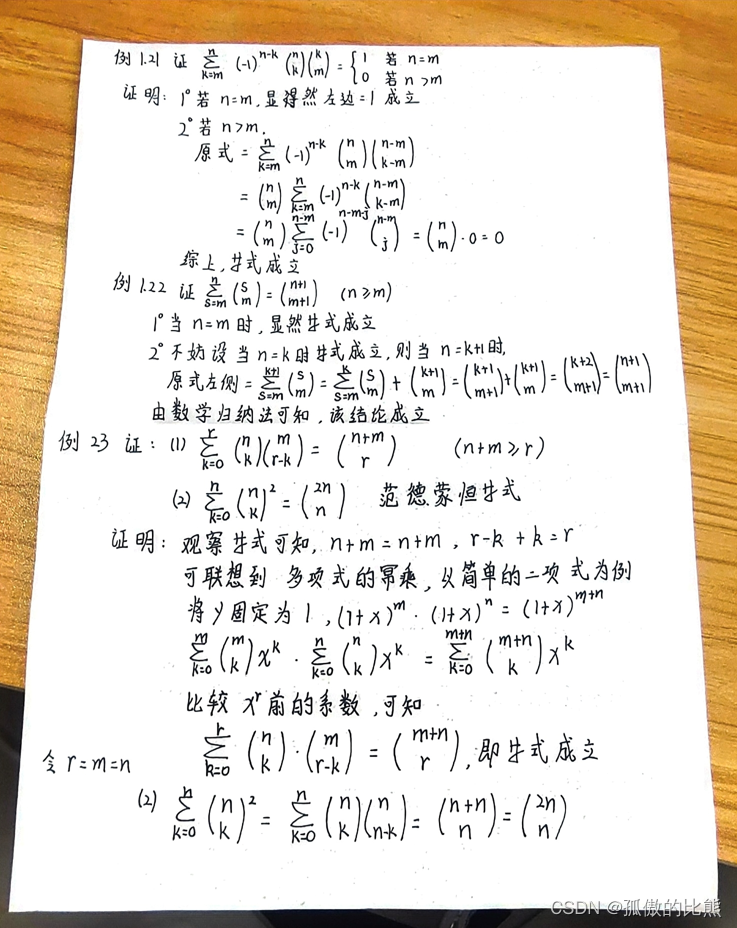 例 1.21 证 \sum_{k=m}^{n} (-1)^{n-k} \binom{n}{k}\binom{k}{m} = \begin{cases} 1 & 若 n=m \\ 0 & 若 n>m \end{cases}
证明: 1° 若 n=m, 显得然 左边=1 成立
2° 若 n>m,
原式 = \sum_{k=m}^{n} (-1)^{n-k} \binom{n}{m}\binom{n-m}{k-m}
= \binom{n}{m} \sum_{k=m}^{n} (-1)^{n-k} \binom{n-m}{k-m}
= \binom{n}{m} \sum_{j=0}^{n-m} (-1)^{n-m-j} \binom{n-m}{j} = \binom{n}{m} \cdot 0 = 0
综上, 等式成立
例 1.22 证 \sum_{s=m}^{n} \binom{s}{m} = \binom{n+1}{m+1} (n≥m)
1° 当 n=m 时, 显然等式成立
2° 不妨设当 n=k 时等式成立, 则当 n=k+1 时,
原式左侧 = \sum_{s=m}^{k+1} \binom{s}{m} = \sum_{s=m}^{k} \binom{s}{m} + \binom{k+1}{m} = \binom{k+1}{m+1} + \binom{k+1}{m} = \binom{k+2}{m+1} = \binom{n+1}{m+1}
由数学归纳法可知, 该结论成立
例 23 证: (1) \sum_{k=0}^{r} \binom{n}{k}\binom{m}{r-k} = \binom{n+m}{r} (n+m≥r)
(2) \sum_{k=0}^{n} \binom{n}{k}^2 = \binom{2n}{n} 范德蒙恒等式
证明: 观察等式可知, n+m=n+m, r-k+k=r
可联想到 多项式的幂乘, 以简单的二项式为例
将 y 固定为 1, (1+x)^m · (1+x)^n = (1+x)^{m+n}
\sum_{k=0}^{m} \binom{m}{k} x^k · \sum_{k=0}^{n} \binom{n}{k} x^k = \sum_{k=0}^{m+n} \binom{m+n}{k} x^k
比较 x^r 前的系数, 可知
\sum_{k=0}^{r} \binom{n}{k} · \binom{m}{r-k} = \binom{m+n}{r}, 即等式成立
令 r=m=n
(2) \sum_{k=0}^{n} \binom{n}{k}^2 = \sum_{k=0}^{n} \binom{n}{k}\binom{n}{n-k} = \binom{n+n}{n} = \binom{2n}{n}
CSDN @孤傲的比熊